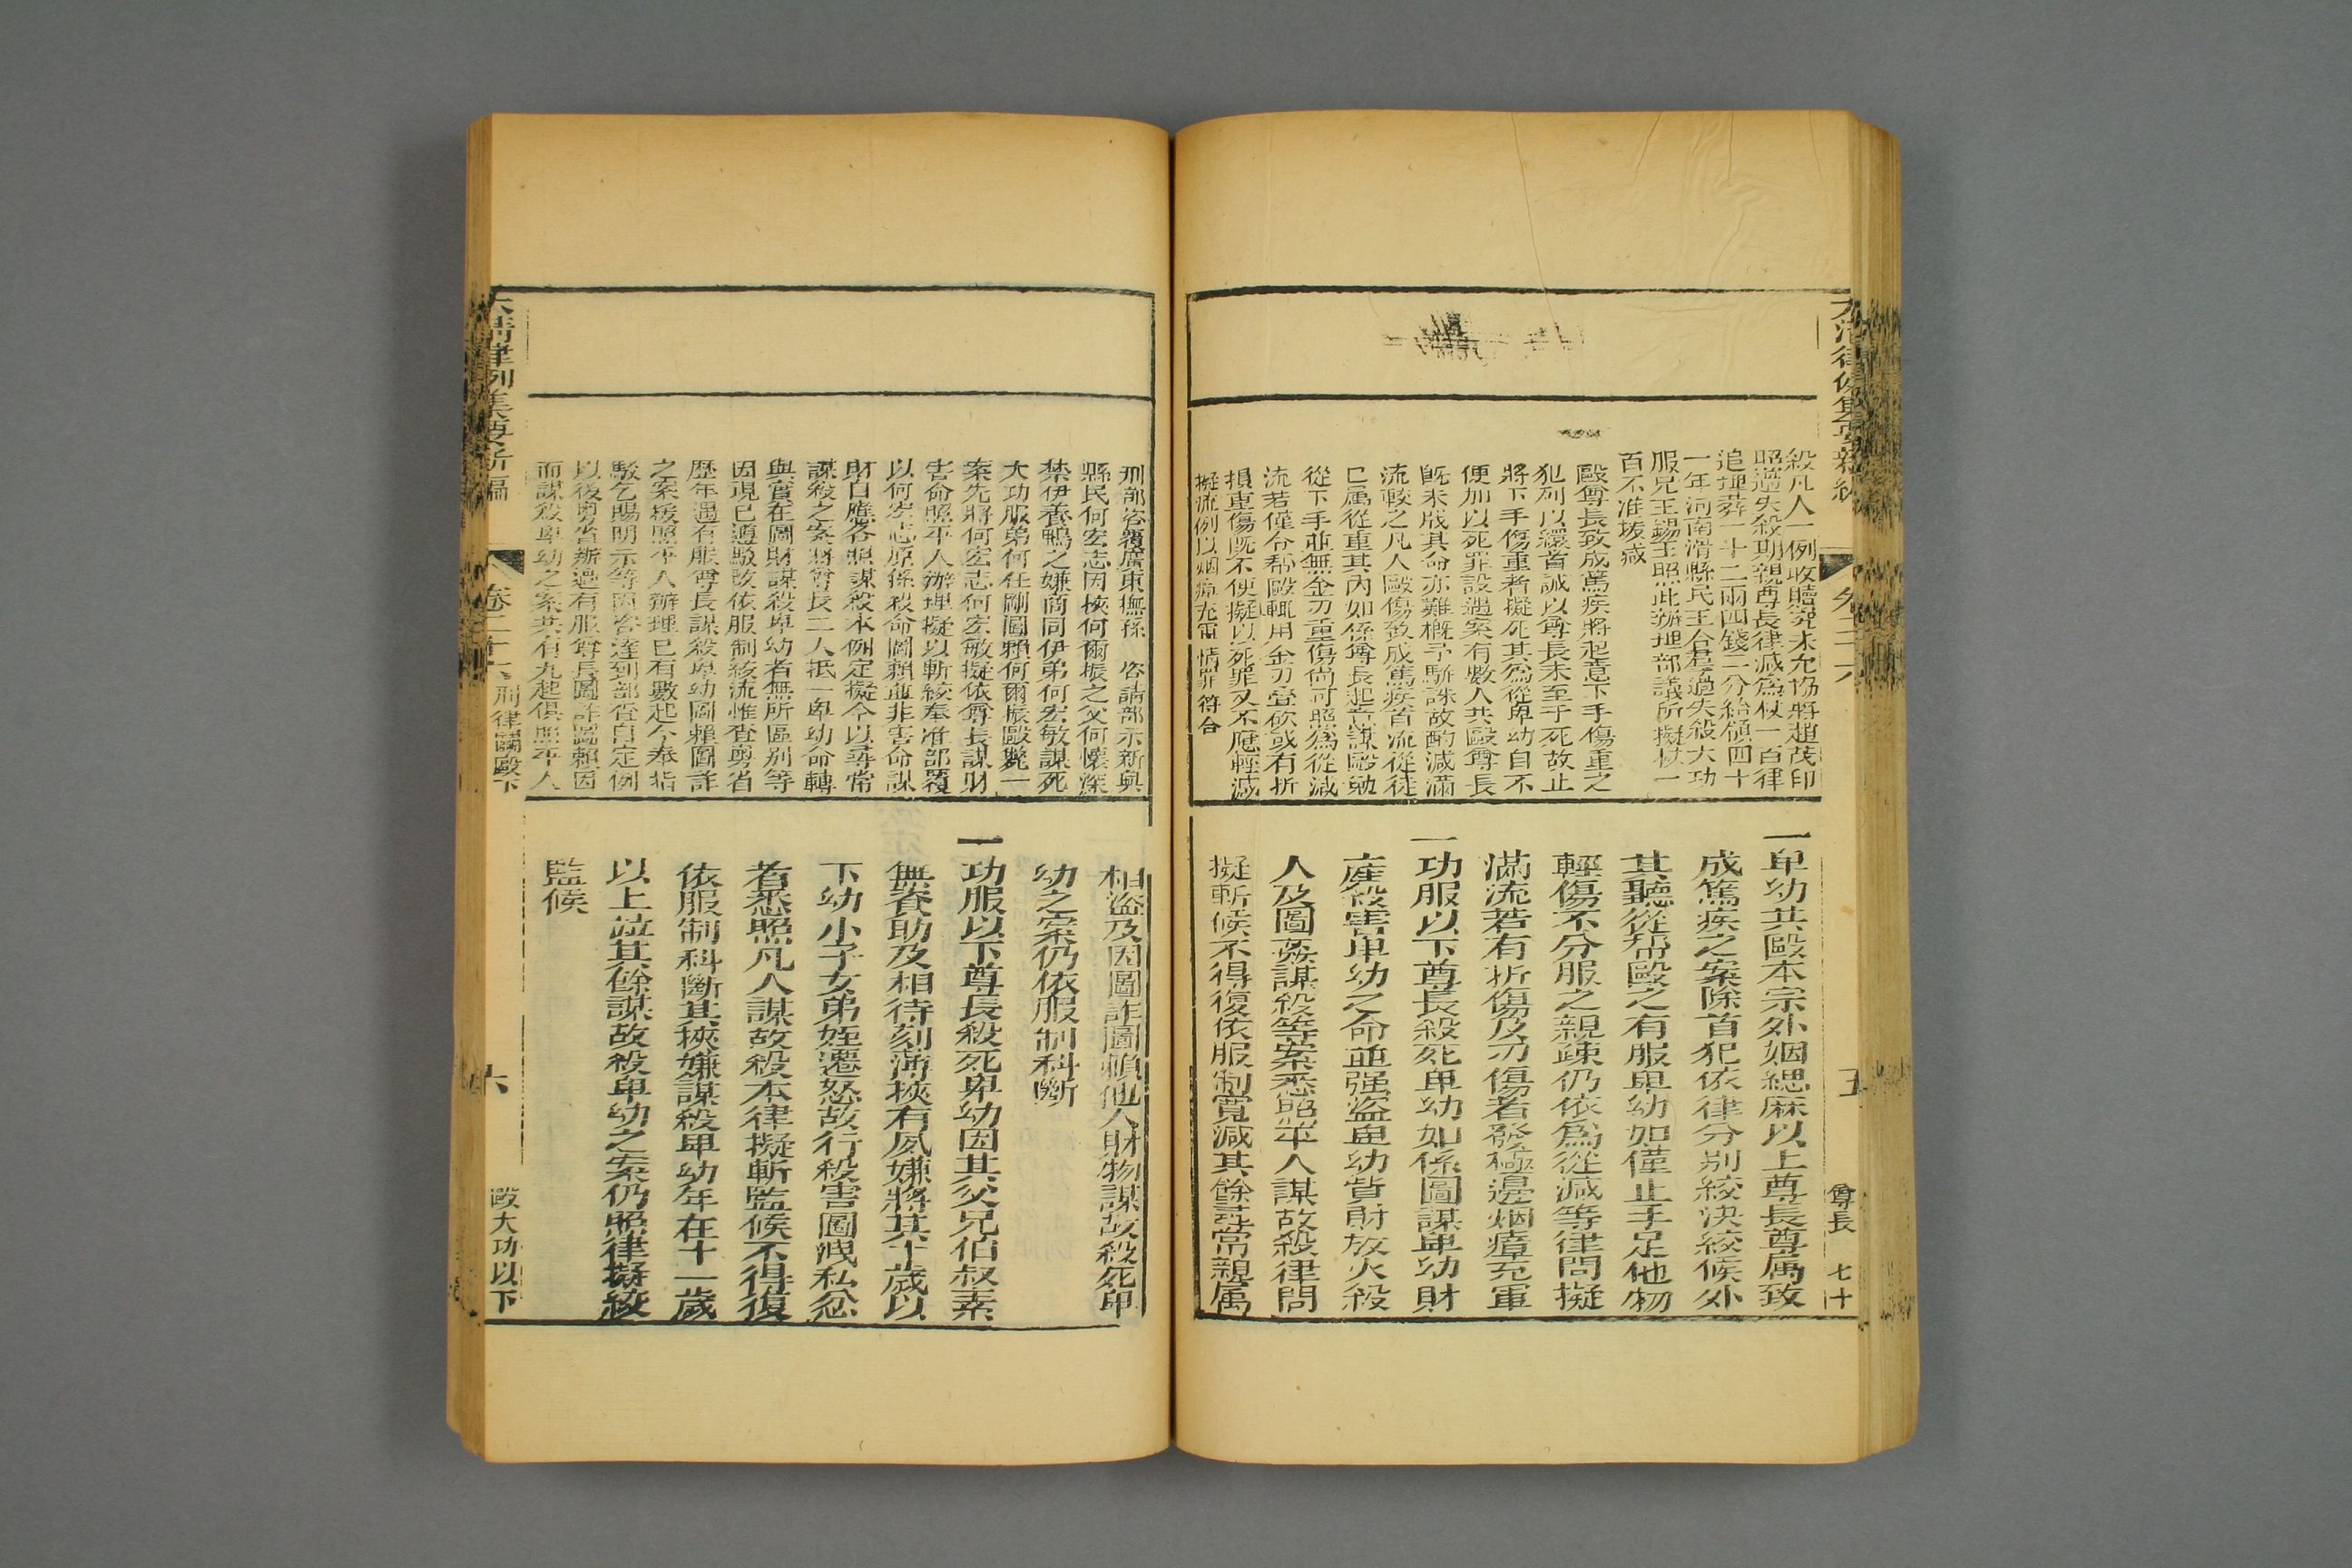 殺凡人一例收贖咨未允協將趙茂印
照過失殺期親尊長律減爲杖一百律
追埋葬一十二兩四錢二分給領四十
一年河南滑縣民王合君過失殺大功
服兄王錫玉照此辦理部議所擬杖一
百不准援減
毆尊長致成篤疾將起意下手傷重之
犯列以繯首誠以尊長未至于死故止
將下手傷重者擬死其爲從卑幼自不
便加以死罪設遇案有數人共毆尊長
旣未戕其命亦難槪予駢誅故酌減滿
流較之凡人毆傷致成篤疾首流從徒
已属從重其內如係尊長起意謀毆勉
從下手並無金刃重傷尚可照爲從減
流若僅令幫毆輒用金刃登砍或有折
損重傷旣不便擬以死罪又不應輕減
擬流例以烟瘴充軍情罪符合
一卑幼共毆本宗外姻緦麻以上尊長尊属致
成篤疾之案除首犯依律分別絞決絞候外
其聽從幫毆之有服卑幼如僅止手足他物
輕傷不分服之親疎仍依爲從減等律問擬
滿流若有折傷及刃傷者發極邊烟瘴充軍
一功服以下尊長殺死卑幼如係圖謀卑幼財
產殺害卑幼之命並强盜卑幼貲財放火殺
人及圖姦謀殺等案悉照平人謀故殺律問
擬斬候不得復依服制寬減其餘尋常親属
尊長 七十
五
刑部咨覆廣東撫孫 咨請部示新興
縣民何宏志因挾何爾振之父何懷深
禁伊養鴨之嫌商同伊弟何宏敏謀死
大功服弟何任剛圖賴何爾振毆斃一
案先將何宏志何宏敏擬依尊長謀財
害命照平人辦理擬以斬絞奉准部覆
以何宏志原係殺命圖賴並非害命謀
財自應各照謀殺本例定擬今以尋常
謀殺之案將尊長二人抵一卑幼命轉
與實在圖財謀殺卑幼者無所區別等
因現已遵駁改依服制絞流惟查粵省
歷年遇有服尊長謀殺卑幼圖賴圖詐
之案援照平人辦理已有數起今奉指
駁乞賜明示等因咨達到部查自定例
以後粵省辦過有服尊長圖詐圖賴因
而謀殺卑幼之案共有九起俱照平人
相盜及因圖詐圖賴他人財物謀故殺死卑
幼之案仍依服制科斷
一功服以下尊長殺死卑幼因其父兄伯叔素
無資助及相待刻薄挾有夙嫌將其十歲以
下幼小子女弟姪遷怒故行殺害圖洩私忿
者悉照凡人謀故殺本律擬斬監候不得復
依服制科斷其挾嫌謀殺卑幼年在十一歲
以上並其餘謀故殺卑幼之案仍照律擬絞
監候
大清律例集要新編
卷二十六 刑律鬭毆下
六
毆大功以下